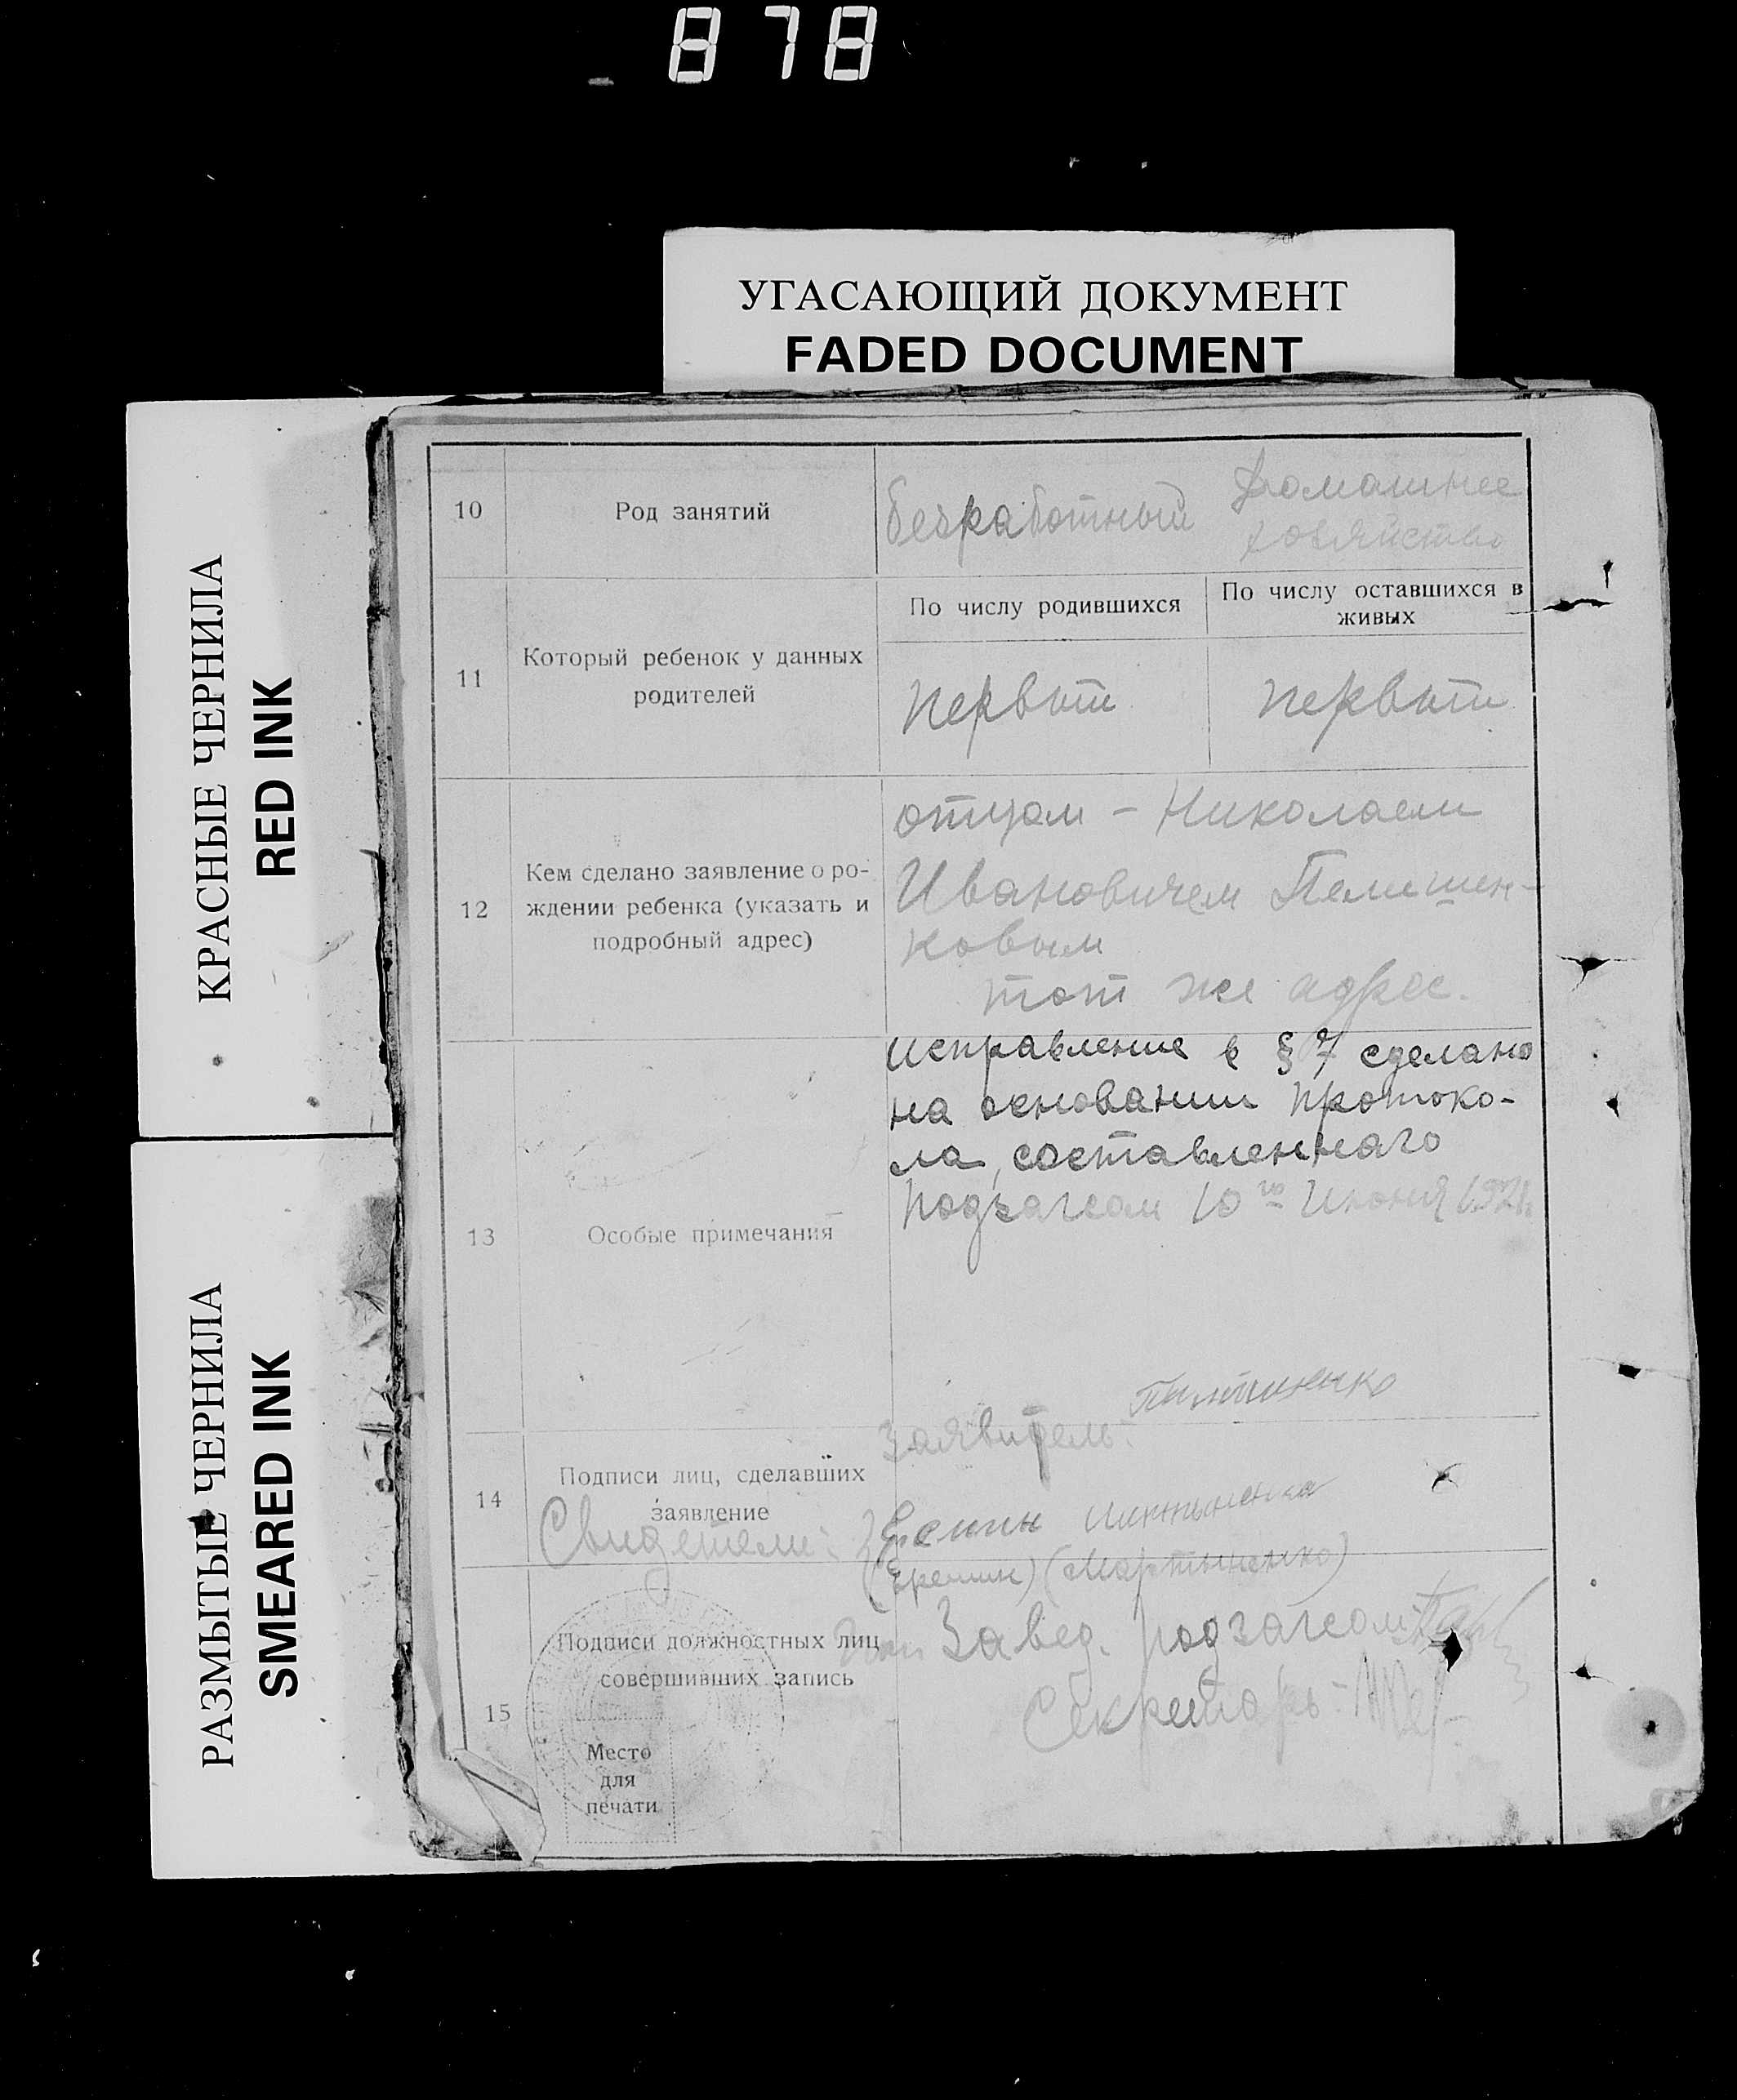 878
УГАСАЮЩИЙ ДОКУМЕНТ
FADED DOCUMENT
КРАСНЫЕ ЧЕРНИЛА
RED INK
РАЗМЫТЫЕ ЧЕРНИЛА
SMEARED INK
10
Род занятий
безработный
Домашнее
хозяйство
11
Который ребенок у данных
родителей
По числу родившихся
По числу оставшихся в
живых
первый
первый
12
Кем сделано заявление о ро-
ждении ребенка (указать и
подробный адрес)
отцом - Николаем
Ивановичем
ковым
тот же адрес.
13
Особые примечания
Исправление в § 7 сделано
на основании протоко-
ла, составленнаго
Подзагсом 10го Июня
14
Подписи лиц, сделавших
заявление
Заявитель:
Свидетели:
(Еремин) (Мартыненко)
15
Подписи должностных лиц
совершивших запись
Место
для
печати
Завед. подзагсом
Секретарь -